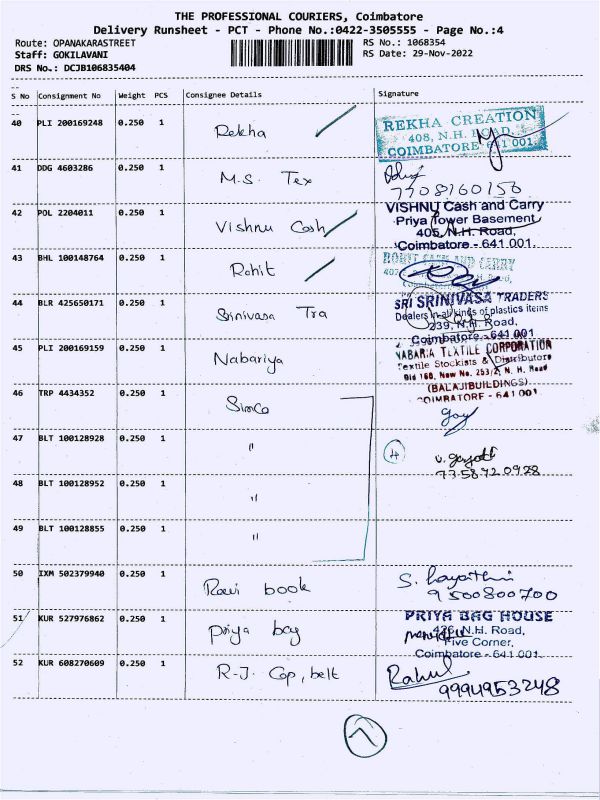 THE PROFESSIONAL COURIERS, Coimbatore
Delivery Runsheet - PCT - Phone No.:0422-3505555 - Page No.:4
Route: OPANAKARASTREET
Staff: GOKILAVANI
DRS No.: DCJB106835404
RS No.: 1068354
RS Date: 29-Nov-2022
S No Consignment No Weight PCS Consignee Details Signature
40 PLI 200169248 0.250 1 Rekha
REKHA CREATION
408, N.H. ROAD,
COIMBATORE - 641 001.
41 DDG 4603286 0.250 1 M.S. Tex
7708160156
42 POL 2204011 0.250 1 Vishnu Cash
VISHNU Cash and Carry
Priya Tower Basement
405, N.H. Road,
Coimbatore - 641 001.
43 BHL 100148764 0.250 1 Rohit
ROHIT CASH AND CARRY
44 BLR 425650171 0.250 1 Srinivasa Tra
SRI SRINIVASA TRADERS
Dealers in all kinds of plastics items
239, N.H. Road,
Coimbatore - 641 001
45 PLI 200169159 0.250 1 Nabariya
NABARIA TEXTILE CORPORATION
Textile Stockists & Distributors
Old 160, New No. 253/2, N. H. Road
(BALAJI BUILDINGS)
COIMBATORE - 641 001
46 TRP 4434352 0.250 1 Simco
47 BLT 100128928 0.250 1 "
4
7358720928
48 BLT 100128952 0.250 1 "
49 BLT 100128855 0.250 1 "
50 IXM 502379940 0.250 1 Ravi book
9500800700
51 KUR 527976862 0.250 1 Priya bag
PRIYA BAG HOUSE
426, N.H. Road,
Five Corner,
Coimbatore - 641 001.
52 KUR 608270609 0.250 1 R-J. Cop, belt
Rahul
9994953248
7